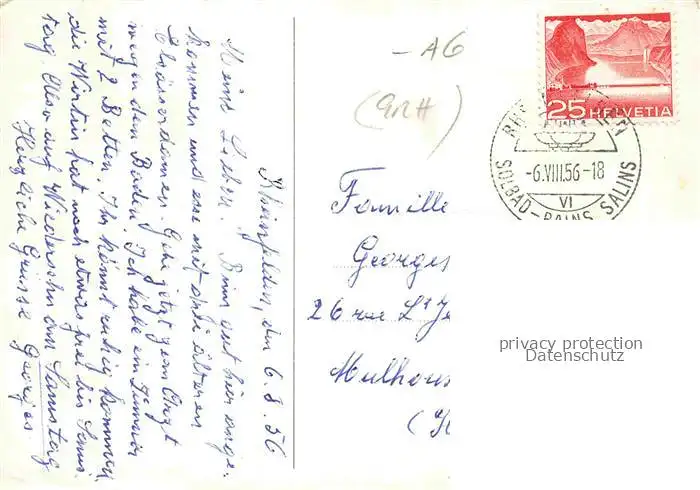 Rheinfelden, den 6.8.56
Meine Lieben. Bin gut hier ange-
kommen und esse mit drei älteren
Elsässerdamen. Gehe jetzt zum Arzt
wegen dem Baden. Ich habe ein Zimmer
mit 2 Betten. Ihr könnt ruhig kommen,
die Wirtin hat noch etwas frei bis Sams-
tag. Also auf Wiedersehn am Samstag
Herzliche Grüsse Georges.
- AG
(GRH)
25 HELVETIA
RHEINFELDEN
-6.VIII.56-18
VI
SOLBAD-BAINS SALINS
Famille
Georges
26 rue St
Mulhous
(H
privacy protection
Datenschutz